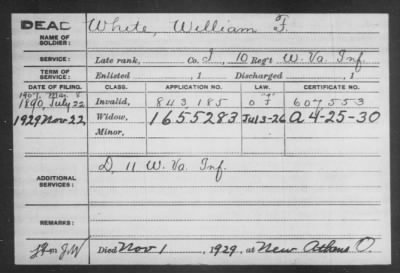 DEAD White, William F.
NAME OF SOLDIER:
SERVICE: Late rank, Co. I, 10 Reg't W. Va. Inf.
TERM OF SERVICE: Enlisted , 1 Discharged , 1
DATE OF FILING. CLASS. APPLICATION NO. LAW. CERTIFICATE NO.
1907, Mar. 8
1890, July 22 Invalid, 843,185 607553
1929 Nov 22 Widow, 1655283 Jul 3-26 A 4-25-30
Minor,
ADDITIONAL SERVICES: D, 11 W. Va. Inf.
REMARKS:
Died Nov 1, 1929, at New Athens O.